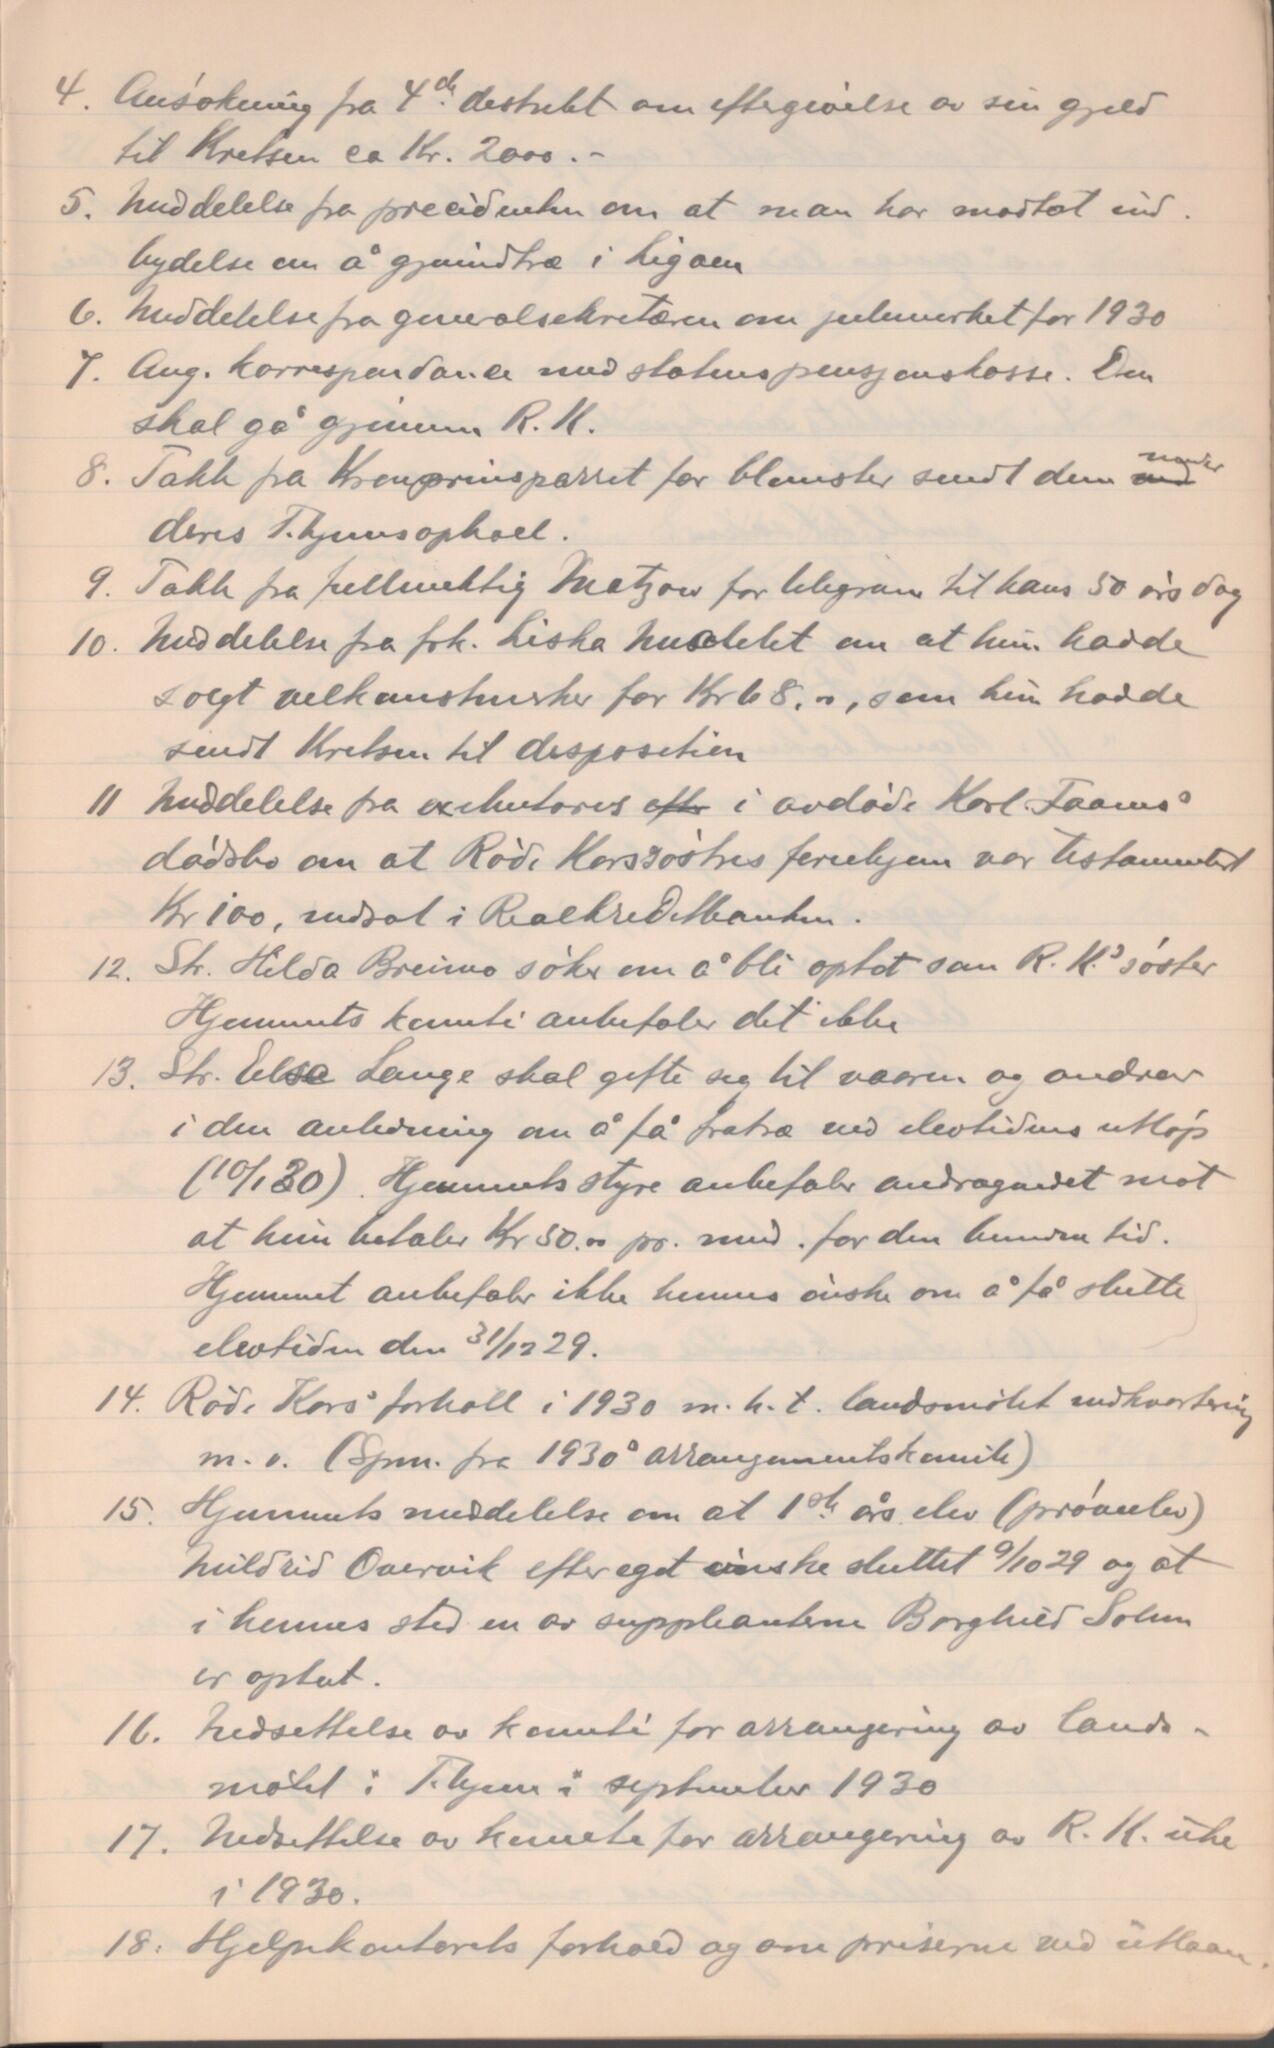 4. Ansökning fra 4de. destrikt om eftergivelse av sin gjeld
til Kretsen ca Kr. 2000.-
5. Meddelelse fra precidenten om at man har modtat ind-
bydelse om å gjenindtræ i Ligaen
6. Meddelelse fra generalsekretæren om julemerket for 1930
7. Ang. korrespondance med statens pensjonskasse. Den
skal gå gjennem R. K.
8. Takk fra Kronprinsparret for blomster sendt dem under
deres T.hjemsophold.
9. Takk fra fullmektig Matzow for telegram til hans 50 års dag
10. Meddelelse fra frk. Liska om at hun hadde
solgt velkomstmerker for Kr 68.00, som hun hadde
sendt Kretsen til desposition
11 Meddelelse fra exekutores efter i avdöde Karl Faanes'
dödsbo om at Röde Korssöstres feriehjem var testamentert
Kr 100, indsat i Realkreditbanken.
12. Str. Hilda Breimo söker om å bli optat som R. K.s söster
Hjemmets komite anbefaler det ikke
13. Str. Else Lange skal gifte seg til vaaren og andrar
i den anledning om å få fratræ ved elevtidens utlöp
(10/1 30). Hjemmets styre anbefaler andragendet mot
at hun betaler Kr 50.00 pr. mnd. for den bundne tid.
Hjemmet anbefaler ikke hennes önske om å få slutte
elevtiden den 31/12 29.
14. Röde Kors' forhold i 1930 m. h. t. landsmötet indkvartering
m. v. (Spm. fra 1930s arrangementskomite)
15. Hjemmets meddelelse om at 1ste års elev (pröveelev)
Mildrid Overvik efter eget önske sluttet 9/10 29 og at
i hennes sted en av suppleantene Borghild Solem
er optat.
16. Nedsettelse av komite for arrangering av lands-
mötet i T.hjem i september 1930
17. Nedsettelse av komite for arrangering av R. K. uke
i 1930.
18. Hjelpekontorets forhold og om priserne ved utlaan.